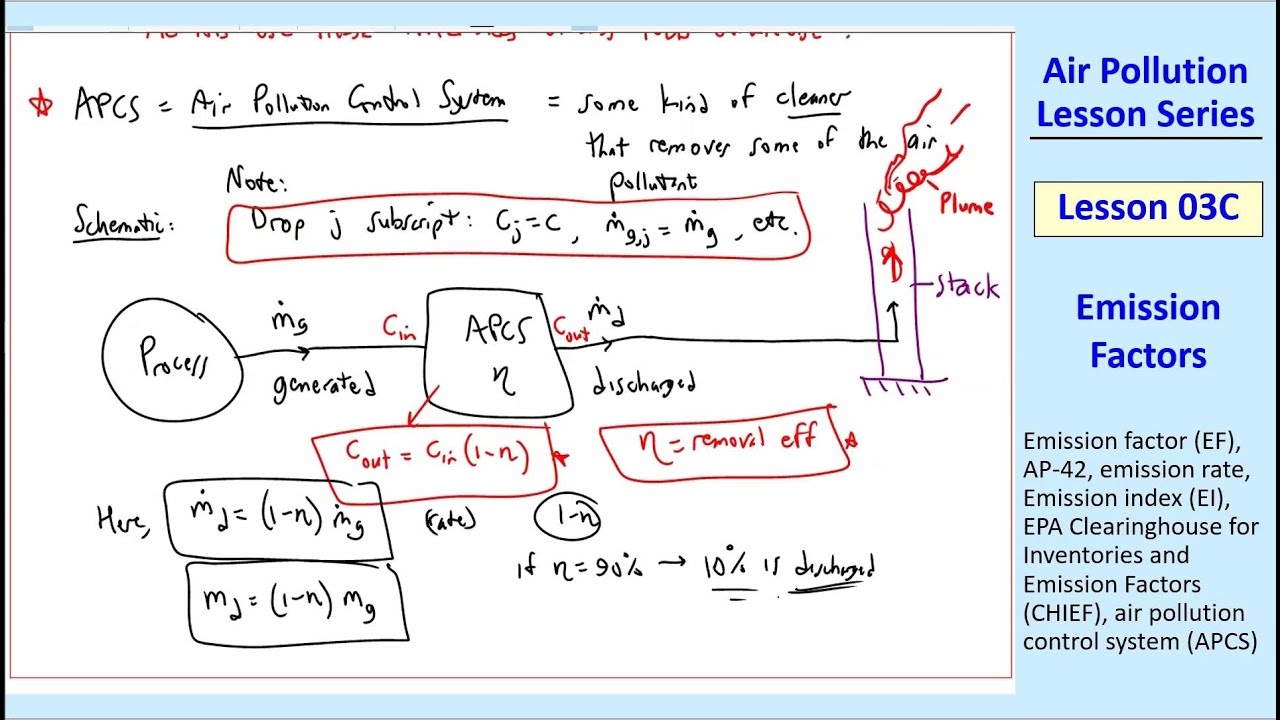 ☆ APCS = Air Pollution Control System = some kind of cleaner
that removes some of the air
pollutant
Note:
Schematic:
Drop j subscript: Cj = C, ṁg,j = ṁg, etc.
Plume
stack
Process
ṁg
generated
Cin
APCS
η
Cout
ṁd
discharged
Cout = Cin (1-η) *
η = removal eff *
Here, ṁd = (1-η) ṁg (rate)
1-η
md = (1-η) mg
if η = 90% → 10% is discharged
Air Pollution
Lesson Series
Lesson 03C
Emission
Factors
Emission factor (EF),
AP-42, emission rate,
Emission index (EI),
EPA Clearinghouse for
Inventories and
Emission Factors
(CHIEF), air pollution
control system (APCS)